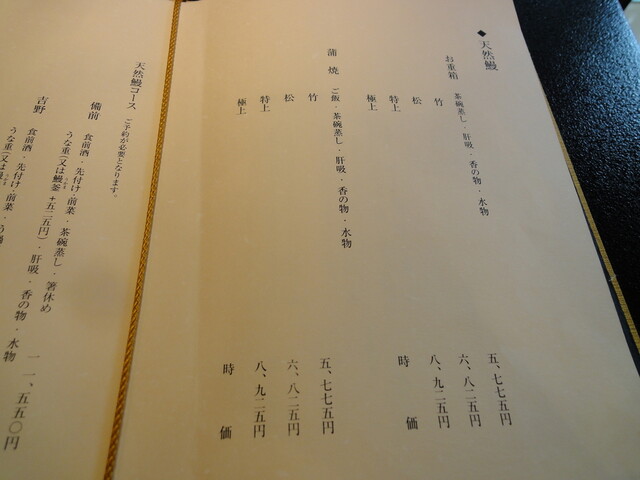 ◆天然鰻
お重箱 茶碗蒸し・肝吸・香の物・水物
竹 五、七七五円
松 六、八二五円
特上 八、九二五円
極上 時価
蒲焼 ご飯・茶碗蒸し・肝吸・香の物・水物
竹 五、七七五円
松 六、八二五円
特上 八、九二五円
極上 時価
天然鰻コース ご予約が必要となります。
備前 食前酒・先付け・前菜・茶碗蒸し・箸休め
うな重(又は鰻釜+五二五円)・肝吸・香の物・水物 一一、五五〇円
吉野 食前酒・先付け・前菜
うな重(又は